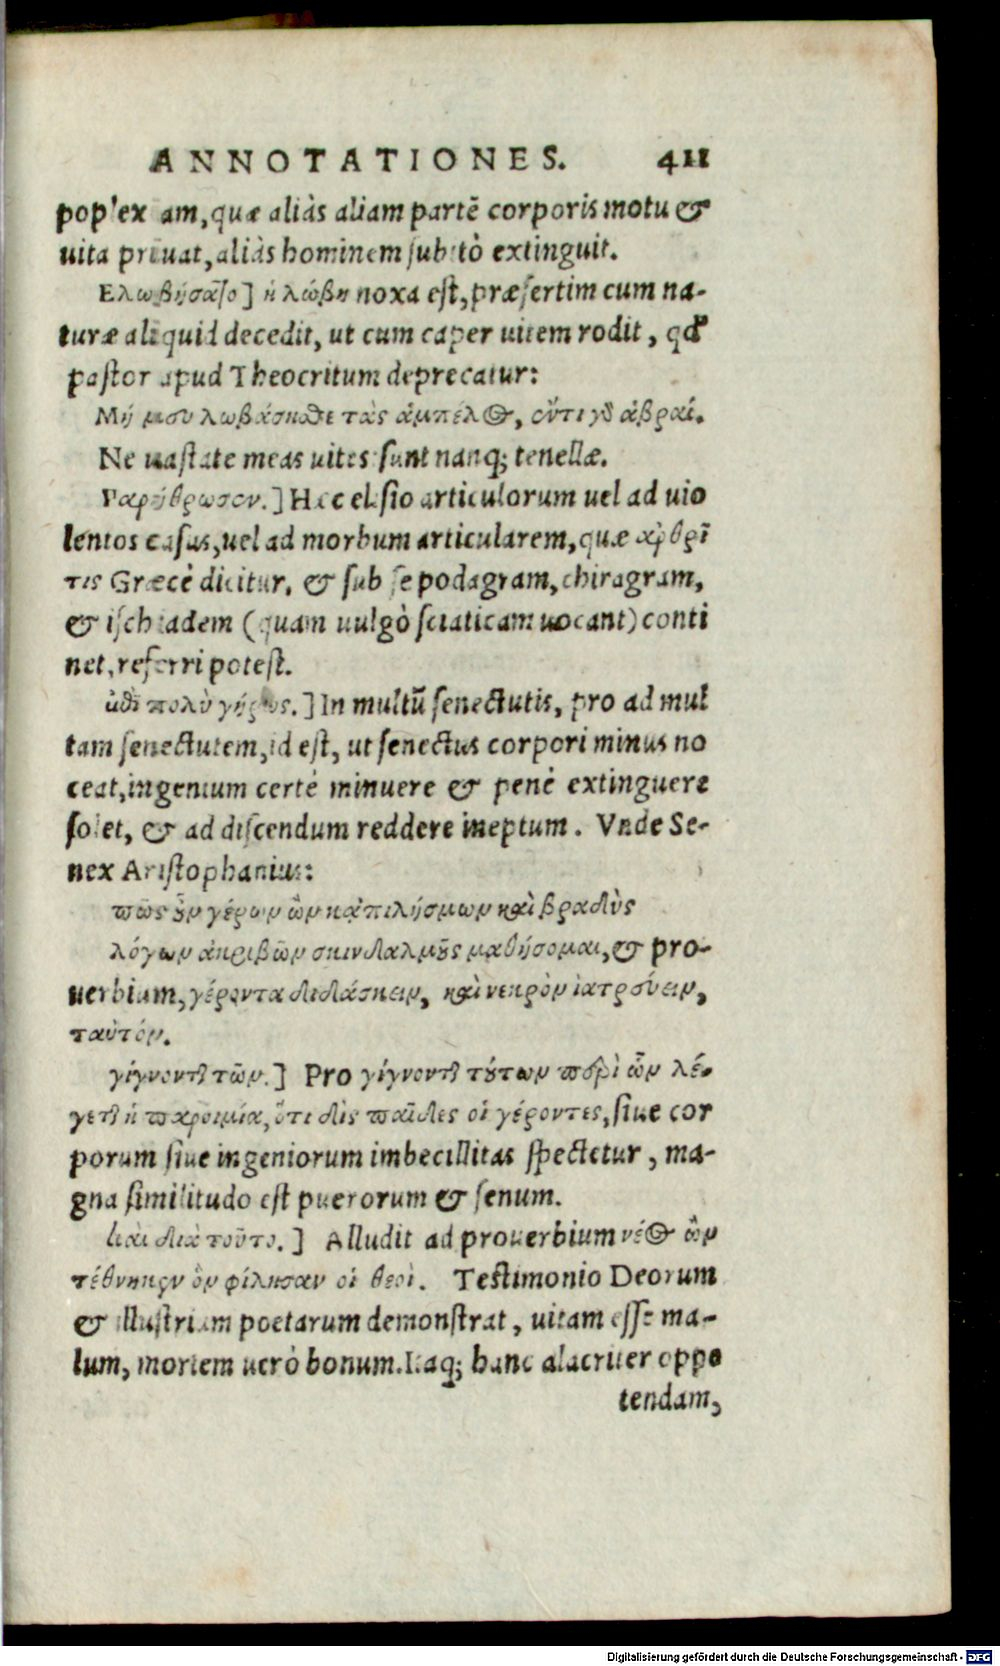 ANNOTATIONES. 411
poplexiam, quæ aliàs aliam partẽ corporis motu &
uita priuat, aliàs hominem subitò extinguit.
Ελωβήσατο] ἡ λώβη noxa est, præsertim cum na-
turæ aliquid decedit, ut cum caper uitem rodit, qđ
pastor apud Theocritum deprecatur:
Μή μευ λωβάσησθε τὰς ἀμπέλος, ἐντὶ γὸ ἁβραί.
Ne uastate meas uites sunt nanq; tenellæ.
Γαρήθρωσεν.] Hæc elisio articulorum uel ad uio
lentos casus, uel ad morbum articularem, quæ ἀρθρῖ
τις Græcè dicitur, & sub se podagram, chiragram,
& ischiadem (quam uulgò sciaticam uocant) conti
net, referri potest.
ἐπὶ πολὺ γήρως.] In multũ senectutis, pro ad mul
tam senectutem, id est, ut senectus corpori minus no
ceat, ingenium certè minuere & penè extinguere
solet, & ad discendum reddere ineptum. Vnde Se-
nex Aristophanius:
πῶς οὖν γέρων ὢν κἀπιλήσμων καὶ βραδὺς
λόγων ἀκριβῶν σκινδαλμοὺς μαθήσομαι, & pro-
uerbium, γέροντα διδάσκειν, καὶ νεκρὸν ἰατρεύειν,
ταὐτόν.
γίγνονται τῶν.] Pro γίγνονται τούτων περὶ ὧν λέ-
γεται ἡ παροιμία, ὅτι δὶς παῖδες οἱ γέροντες, siue cor
porum siue ingeniorum imbecillitas spectetur, ma-
gna similitudo est puerorum & senum.
καὶ διὰ τοῦτο.] Alludit ad prouerbium νέος ὢν
τέθνηκεν ὃν φίλησαν οἱ θεοὶ. Testimonio Deorum
& illustrium poetarum demonstrat, uitam esse ma-
lum, mortem uerò bonum. Itaq; hanc alacriter oppe
tendam,
Digitalisierung gefördert durch die Deutsche Forschungsgemeinschaft - DFG